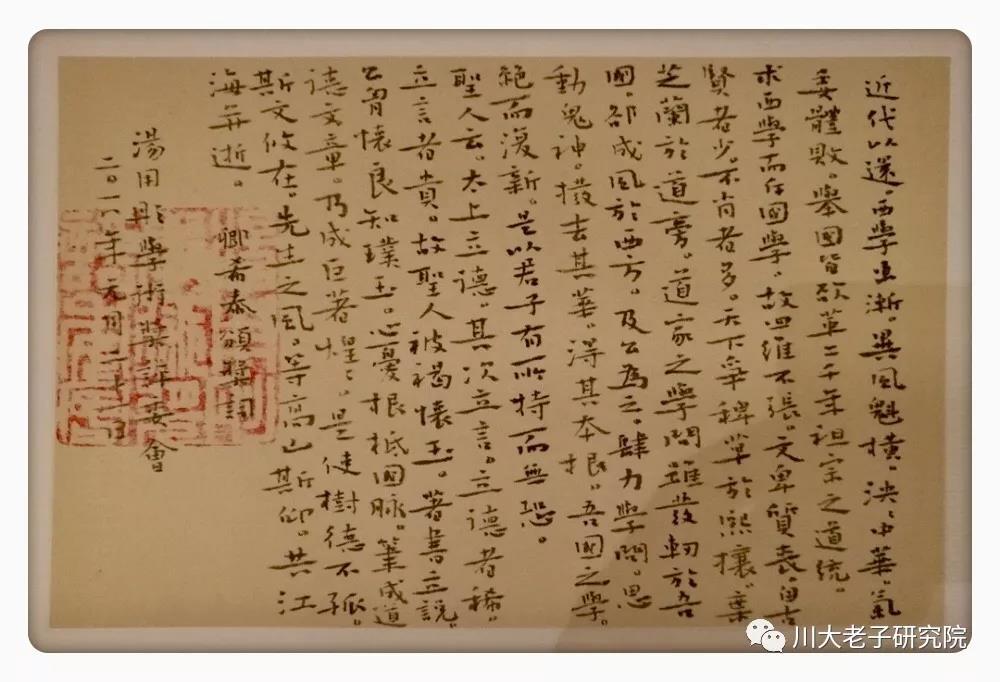 近代以還。西學東漸。異風魁橫。泱泱中華。氣
委體敗。舉國皆欲革二千年祖宗之道統。
求西學而斥國學。故四維不張。文卑質喪。自古
賢者少。不肖者多。天下爭稗草於熙攘。棄
芝蘭於道旁。道家之學問雖發軔於吾
國。卻成風於西方。及公為之。肆力學問。思
動鬼神。撥去其華。得其本根。吾國之學。
絕而復新。是以君子有所恃而無恐。
聖人云。太上立德。其次立言。立德者稀。
立言者貴。故聖人被褐懷玉。著書立說。
公胷懷良知璞玉。心憂根柢國脉。筆成道
德文章。乃成巨著煌煌。是使樹德不孤。
斯文攸在。先生之風。等高山斯仰。共江
海并逝。
卿希泰頒獎詞
湯用彤學術獎評委會
二〇一六年元月二十一日
川大老子研究院